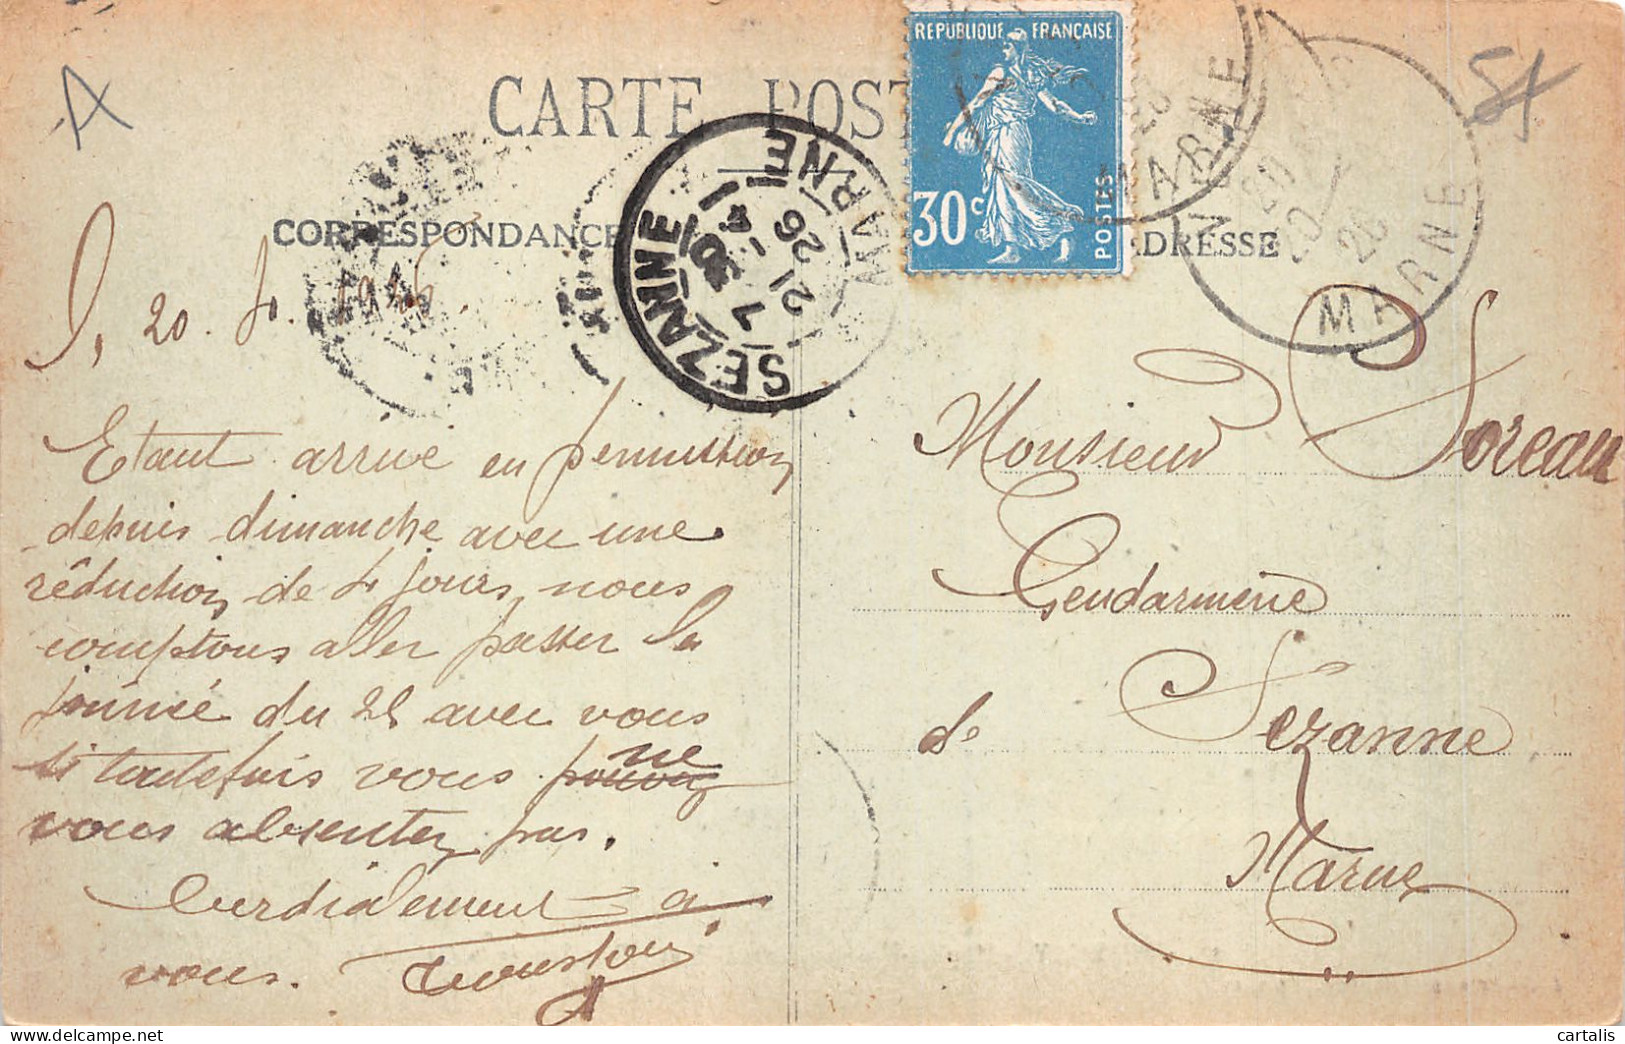 CARTE POST
CORRESPONDANCE
DRESSE
REPUBLIQUE FRANÇAISE
30c
POSTES
MARNE
MARNE
SEZANNE
7 30
21 - 4
26
MARNE
20 . 4 . 1926.
Etant arrivé en permission
depuis dimanche avec une
réduction de 4 jours, nous
comptons aller passer la
journée du 25 avec vous
si toutefois vous ne
vous absentez pas.
Cordialement à
vous.
Monsieur Soreau
Gendarmerie
de Sezanne
Marne
cartalis